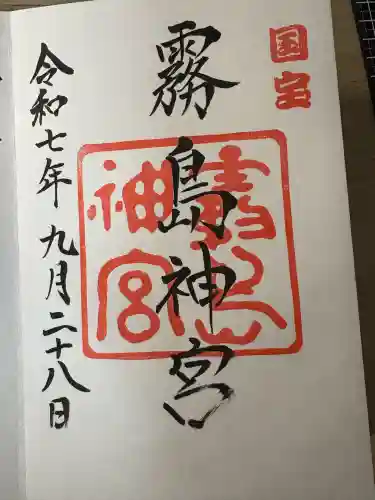 国宝
霧島神宮
霧島
神宮
令和七年九月二十八日